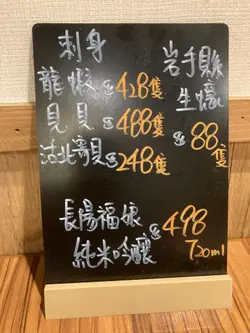 刺身
龍蝦 $428隻
見貝 $488隻
活北寄貝 $248隻
岩手縣
生蠔
$88
隻
長陽福娘
純米吟釀
$498
720ml